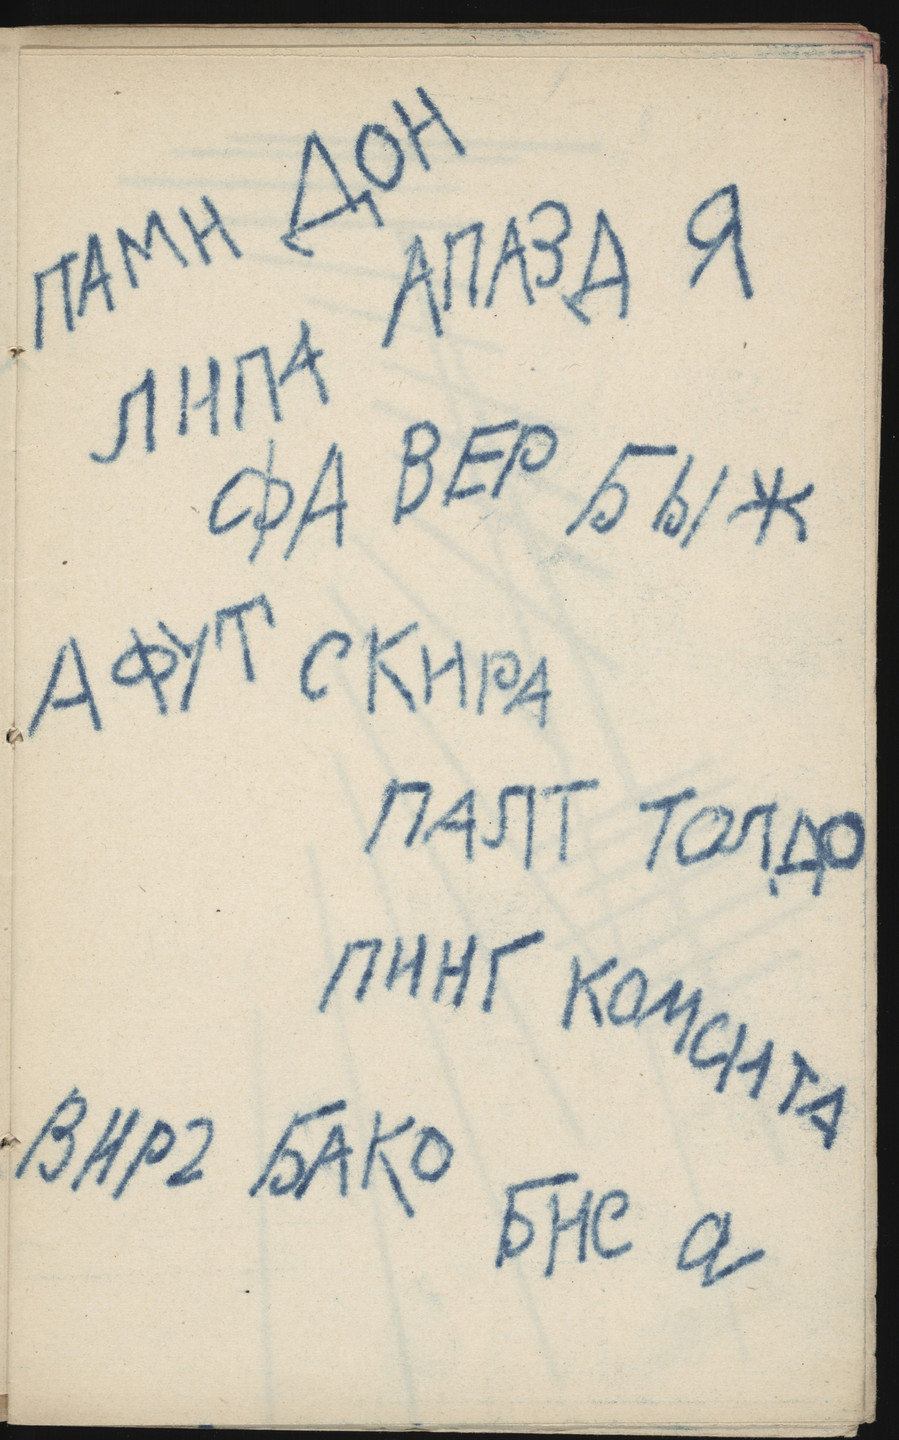 ПАМН ДОН
АПАЗД Я
ЛНПА
ФА ВЕР БЫЖ
АФУТ СКНРА
ПАЛТ ТОЛДО
ПННГ КОМСНТА
ВНРг БАКО
БНС а